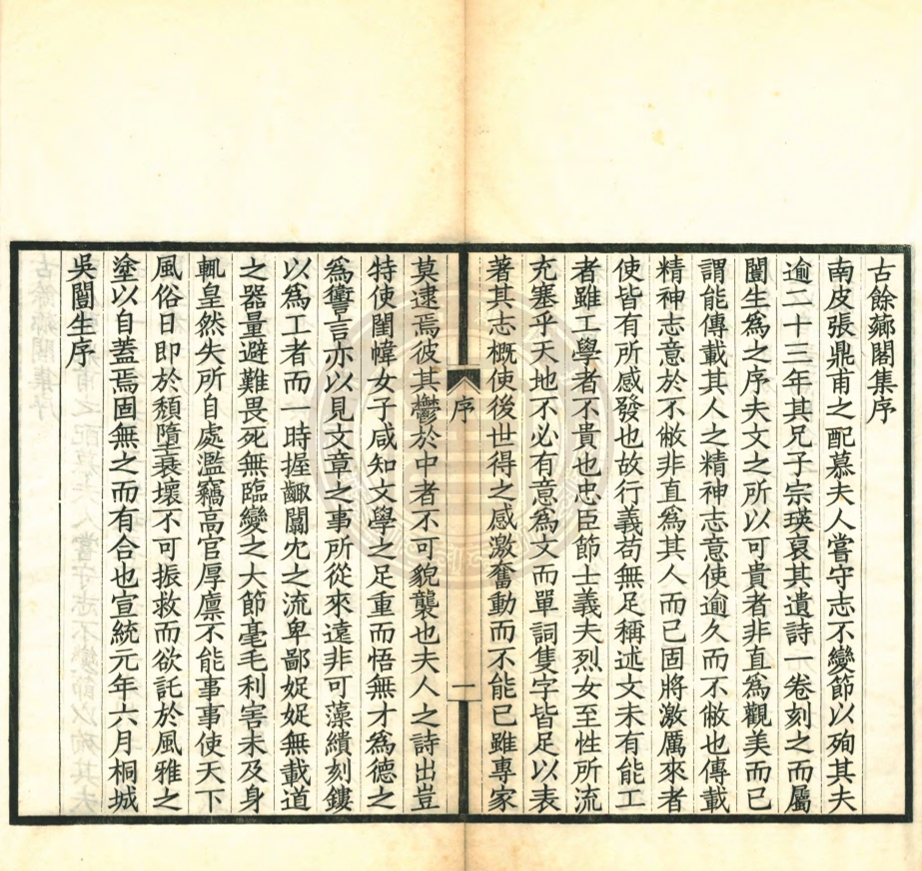 古餘薌閣集序
南皮張鼎甫之配慕夫人嘗守志不變節以殉其夫
逾二十三年其兄子宗瑛裒其遺詩一卷刻之而屬
闓生爲之序夫文之所以可貴者非直爲觀美而已
謂能傳載其人之精神志意使逾久而不敝也傳載
精神志意於不敝非直爲其人而已固將激厲來者
使皆有所感發也故行義苟無足稱述文未有能工
者雖工學者不貴也忠臣節士義夫烈女至性所流
充塞乎天地不必有意爲文而單詞隻字皆足以表
著其志概使後世得之感激奮動而不能已雖專家
序
一
莫逮焉彼其鬱於中者不可貌襲也夫人之詩出豈
特使閨幃女子咸知文學之足重而悟無才爲德之
爲讆言亦以見文章之事所從來遠非可藻繢刻鏤
以爲工者而一時握齱闒冗之流卑鄙娖娖無載道
之器量避難畏死無臨變之大節毫毛利害未及身
輒皇然失所自處濫竊高官厚廪不能事事使天下
風俗日即於頹隳衰壞不可振救而欲託於風雅之
塗以自蓋焉固無之而有合也宣統元年六月桐城
吳闓生序